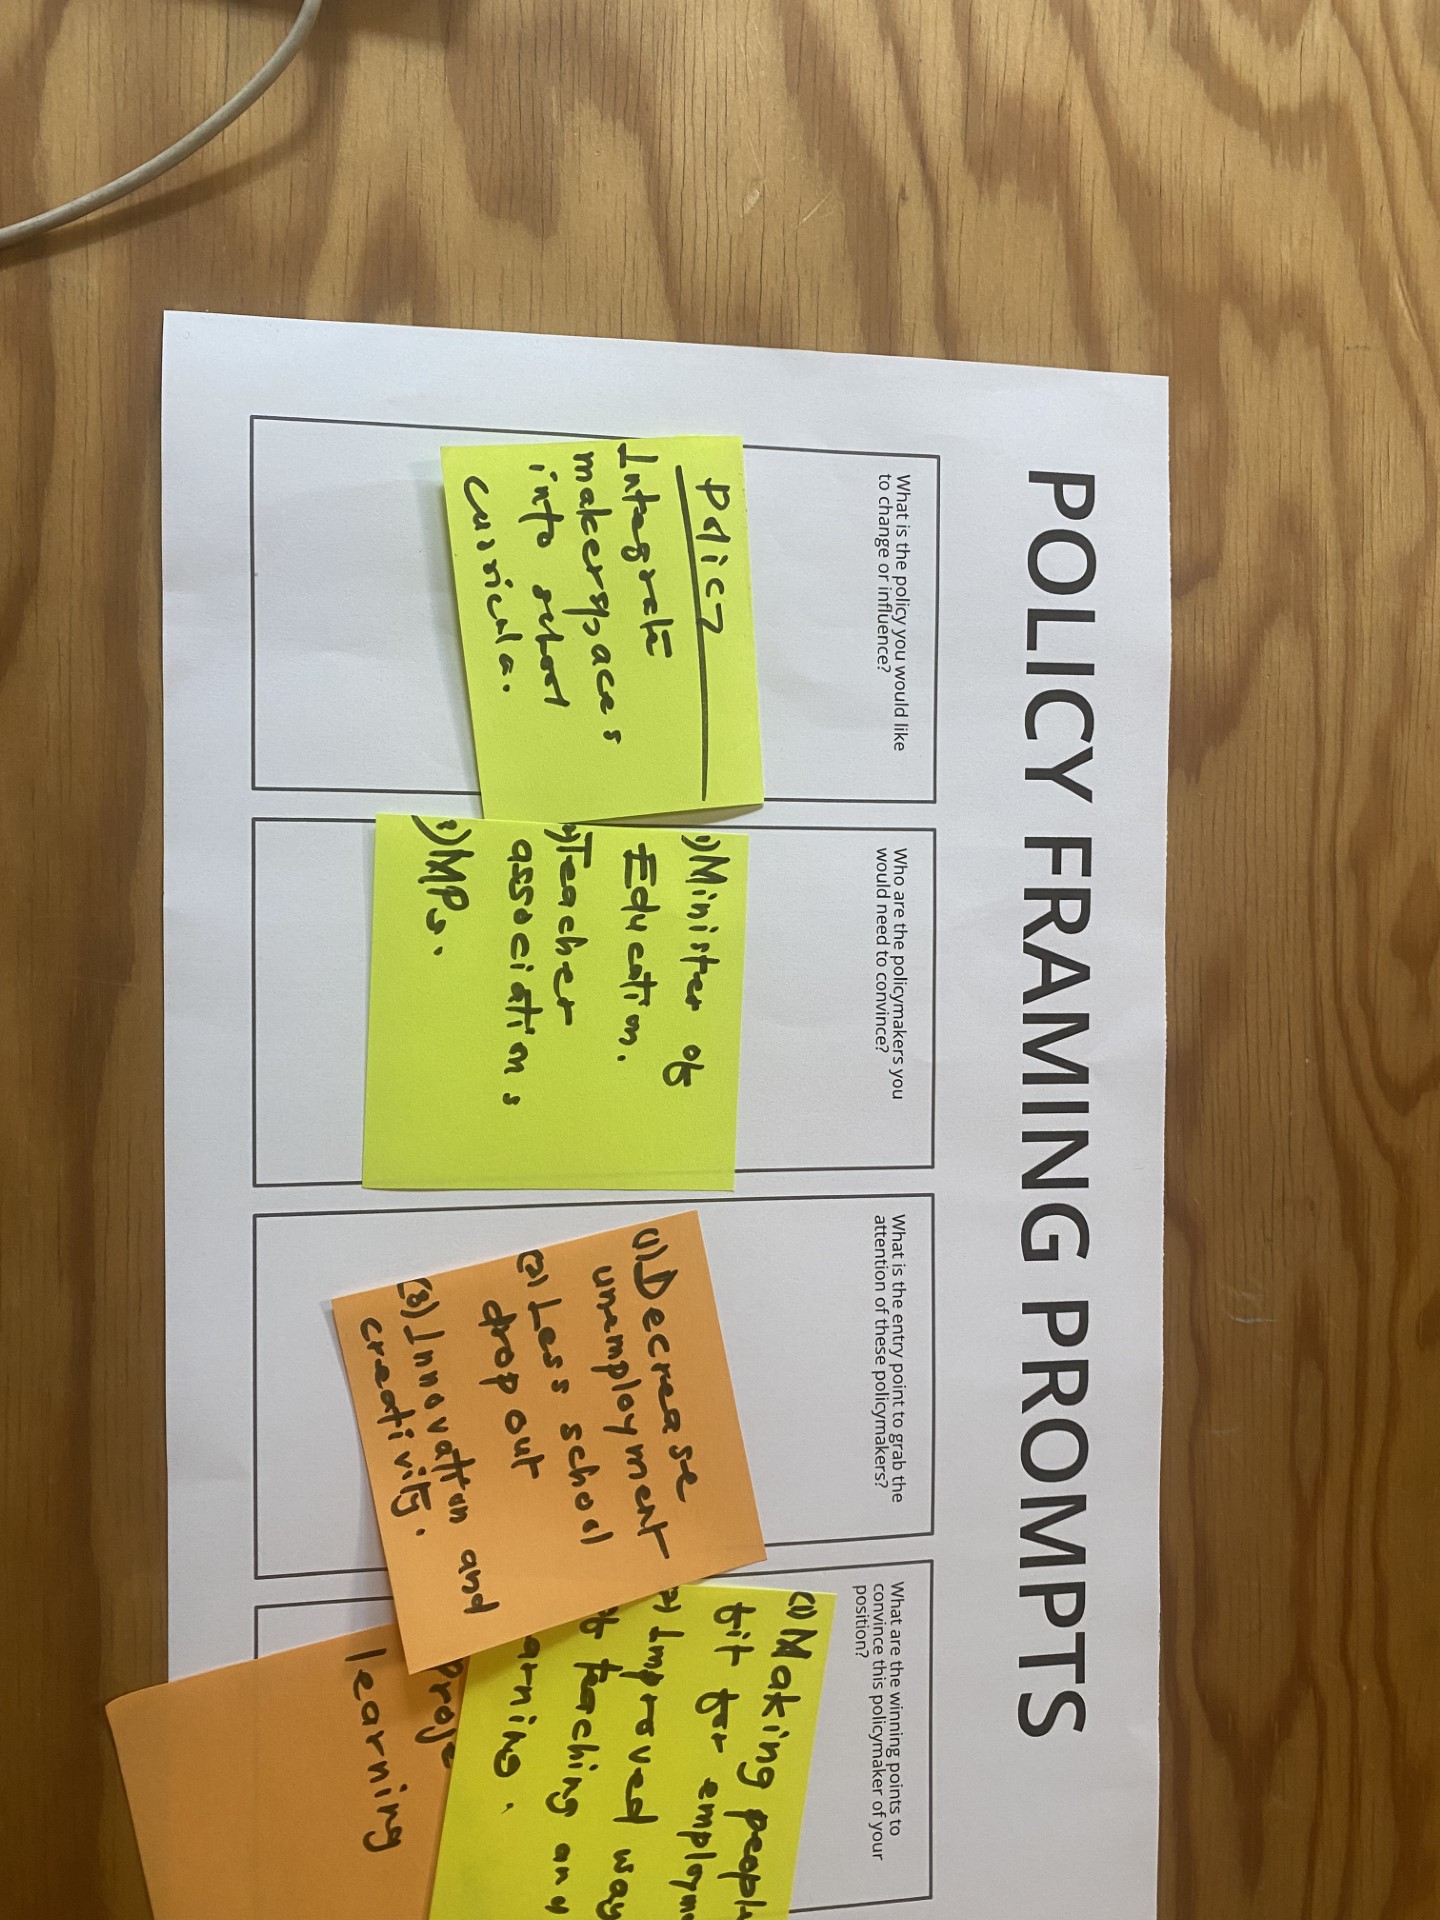 POLICY FRAMING PROMPTS
What is the policy you would like
to change or influence?
Policy
Integrate
makerspaces
into school
curricula.
Who are the policymakers you
would need to convince?
1) Minister of
Education.
2) Teacher
associations
3) MPs.
What is the entry point to grab the
attention of these policymakers?
(1) Decrease
unemployment
(2) Less school
drop out
(3) Innovation and
creativity.
What are the winning points to
convince this policymaker of your
position?
(1) Making people
fit for employm
2) Improved way
of teaching and
arning.
Proje
learning